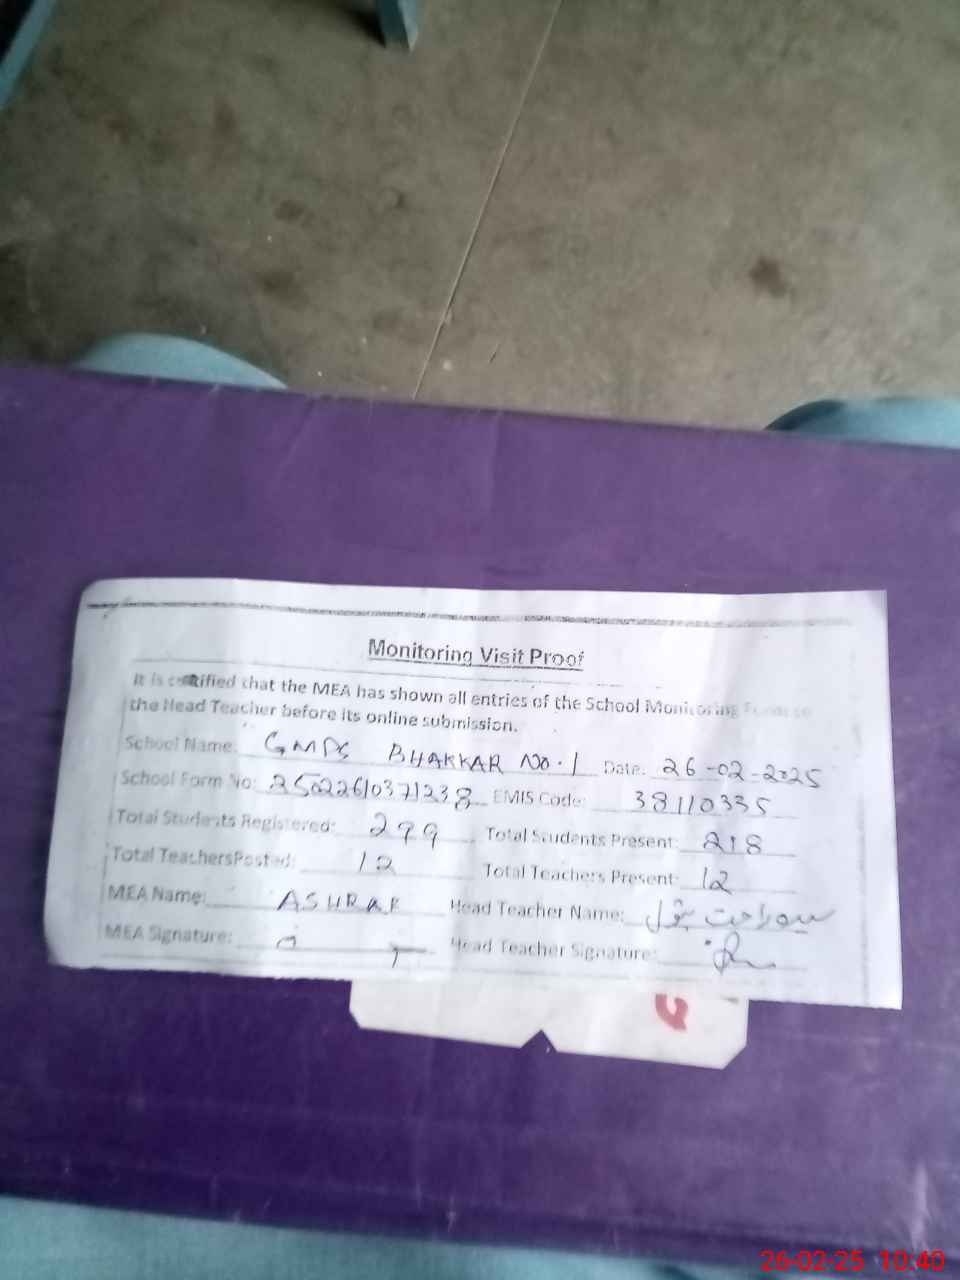 Monitoring Visit Proof
It is certified that the MEA has shown all entries of the School Monitoring Form to
the Head Teacher before its online submission.
School Name: GMPS BHAKKAR NO.1 Date: 26-02-2025
School Form No: 25022610371238 EMIS Code: 38110335
Total Students Registered: 299 Total Students Present: 218
Total TeachersPosted: 12 Total Teachers Present: 12
MEA Name: ASHRAF Head Teacher Name: بتول
MEA Signature: Head Teacher Signature:
26-02-25 10:40